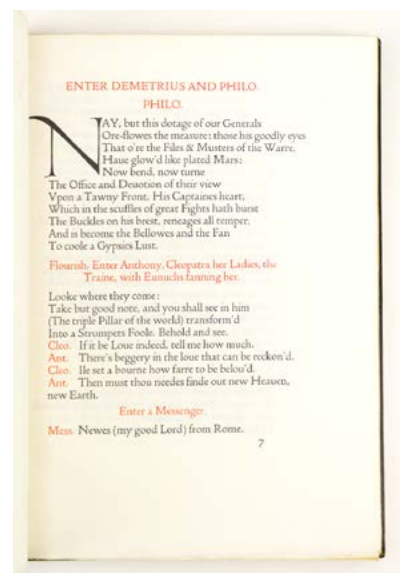 ENTER DEMETRIUS AND PHILO.
PHILO.
NAY, but this dotage of our Generals
Ore-flowes the measure: those his goodly eyes
That o're the Files & Musters of the Warre,
Haue glow'd like plated Mars:
Now bend, now turne
The Office and Deuotion of their view
Vpon a Tawny Front. His Captaines heart,
Which in the scuffles of great Fights hath burst
The Buckles on his brest, reneages all temper,
And is become the Bellowes and the Fan
To coole a Gypsies Lust.
Flourish. Enter Anthony, Cleopatra her Ladies, the
Traine, with Eunuchs fanning her.
Looke where they come:
Take but good note, and you shall see in him
(The triple Pillar of the world) transform'd
Into a Strumpets Foole. Behold and see.
Cleo. If it be Loue indeed, tell me how much.
Ant. There's beggery in the loue that can be reckon'd.
Cleo. Ile set a bourne how farre to be belou'd.
Ant. Then must thou needes finde out new Heauen,
new Earth.
Enter a Messenger.
Mess. Newes (my good Lord) from Rome.
7